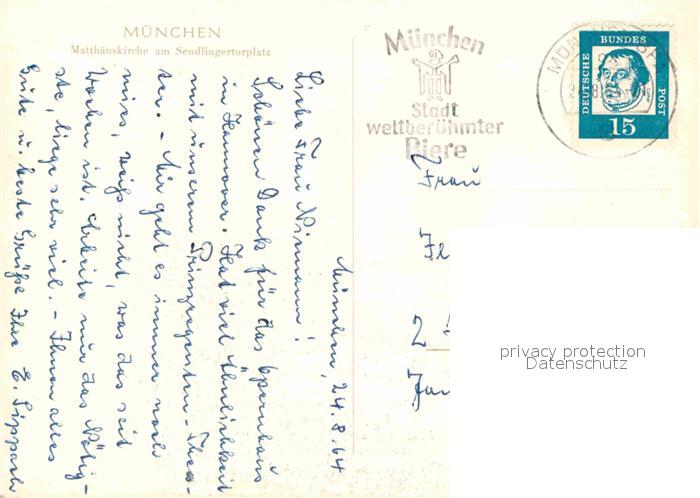 MÜNCHEN
Matthäuskirche am Sendlingertorplatz
München
Stadt
weltberühmter
Biere
DEUTSCHE BUNDESPOST
15
München, 24.8.64
Liebe Frau
Schönen Dank für das Opernhaus
in Hannover. Hat viel Ähnlichkeit
mit unserem Prinzregenten-Thea-
ter. – Mir geht es immer noch
mies, weiß nicht, was das seit
Wochen ist. Arbeite nur das Nötig-
ste, liege sehr viel. – Ihnen alles
Gute u. beste Grüße Ihre E. Lippach
Frau
privacy protection
Datenschutz